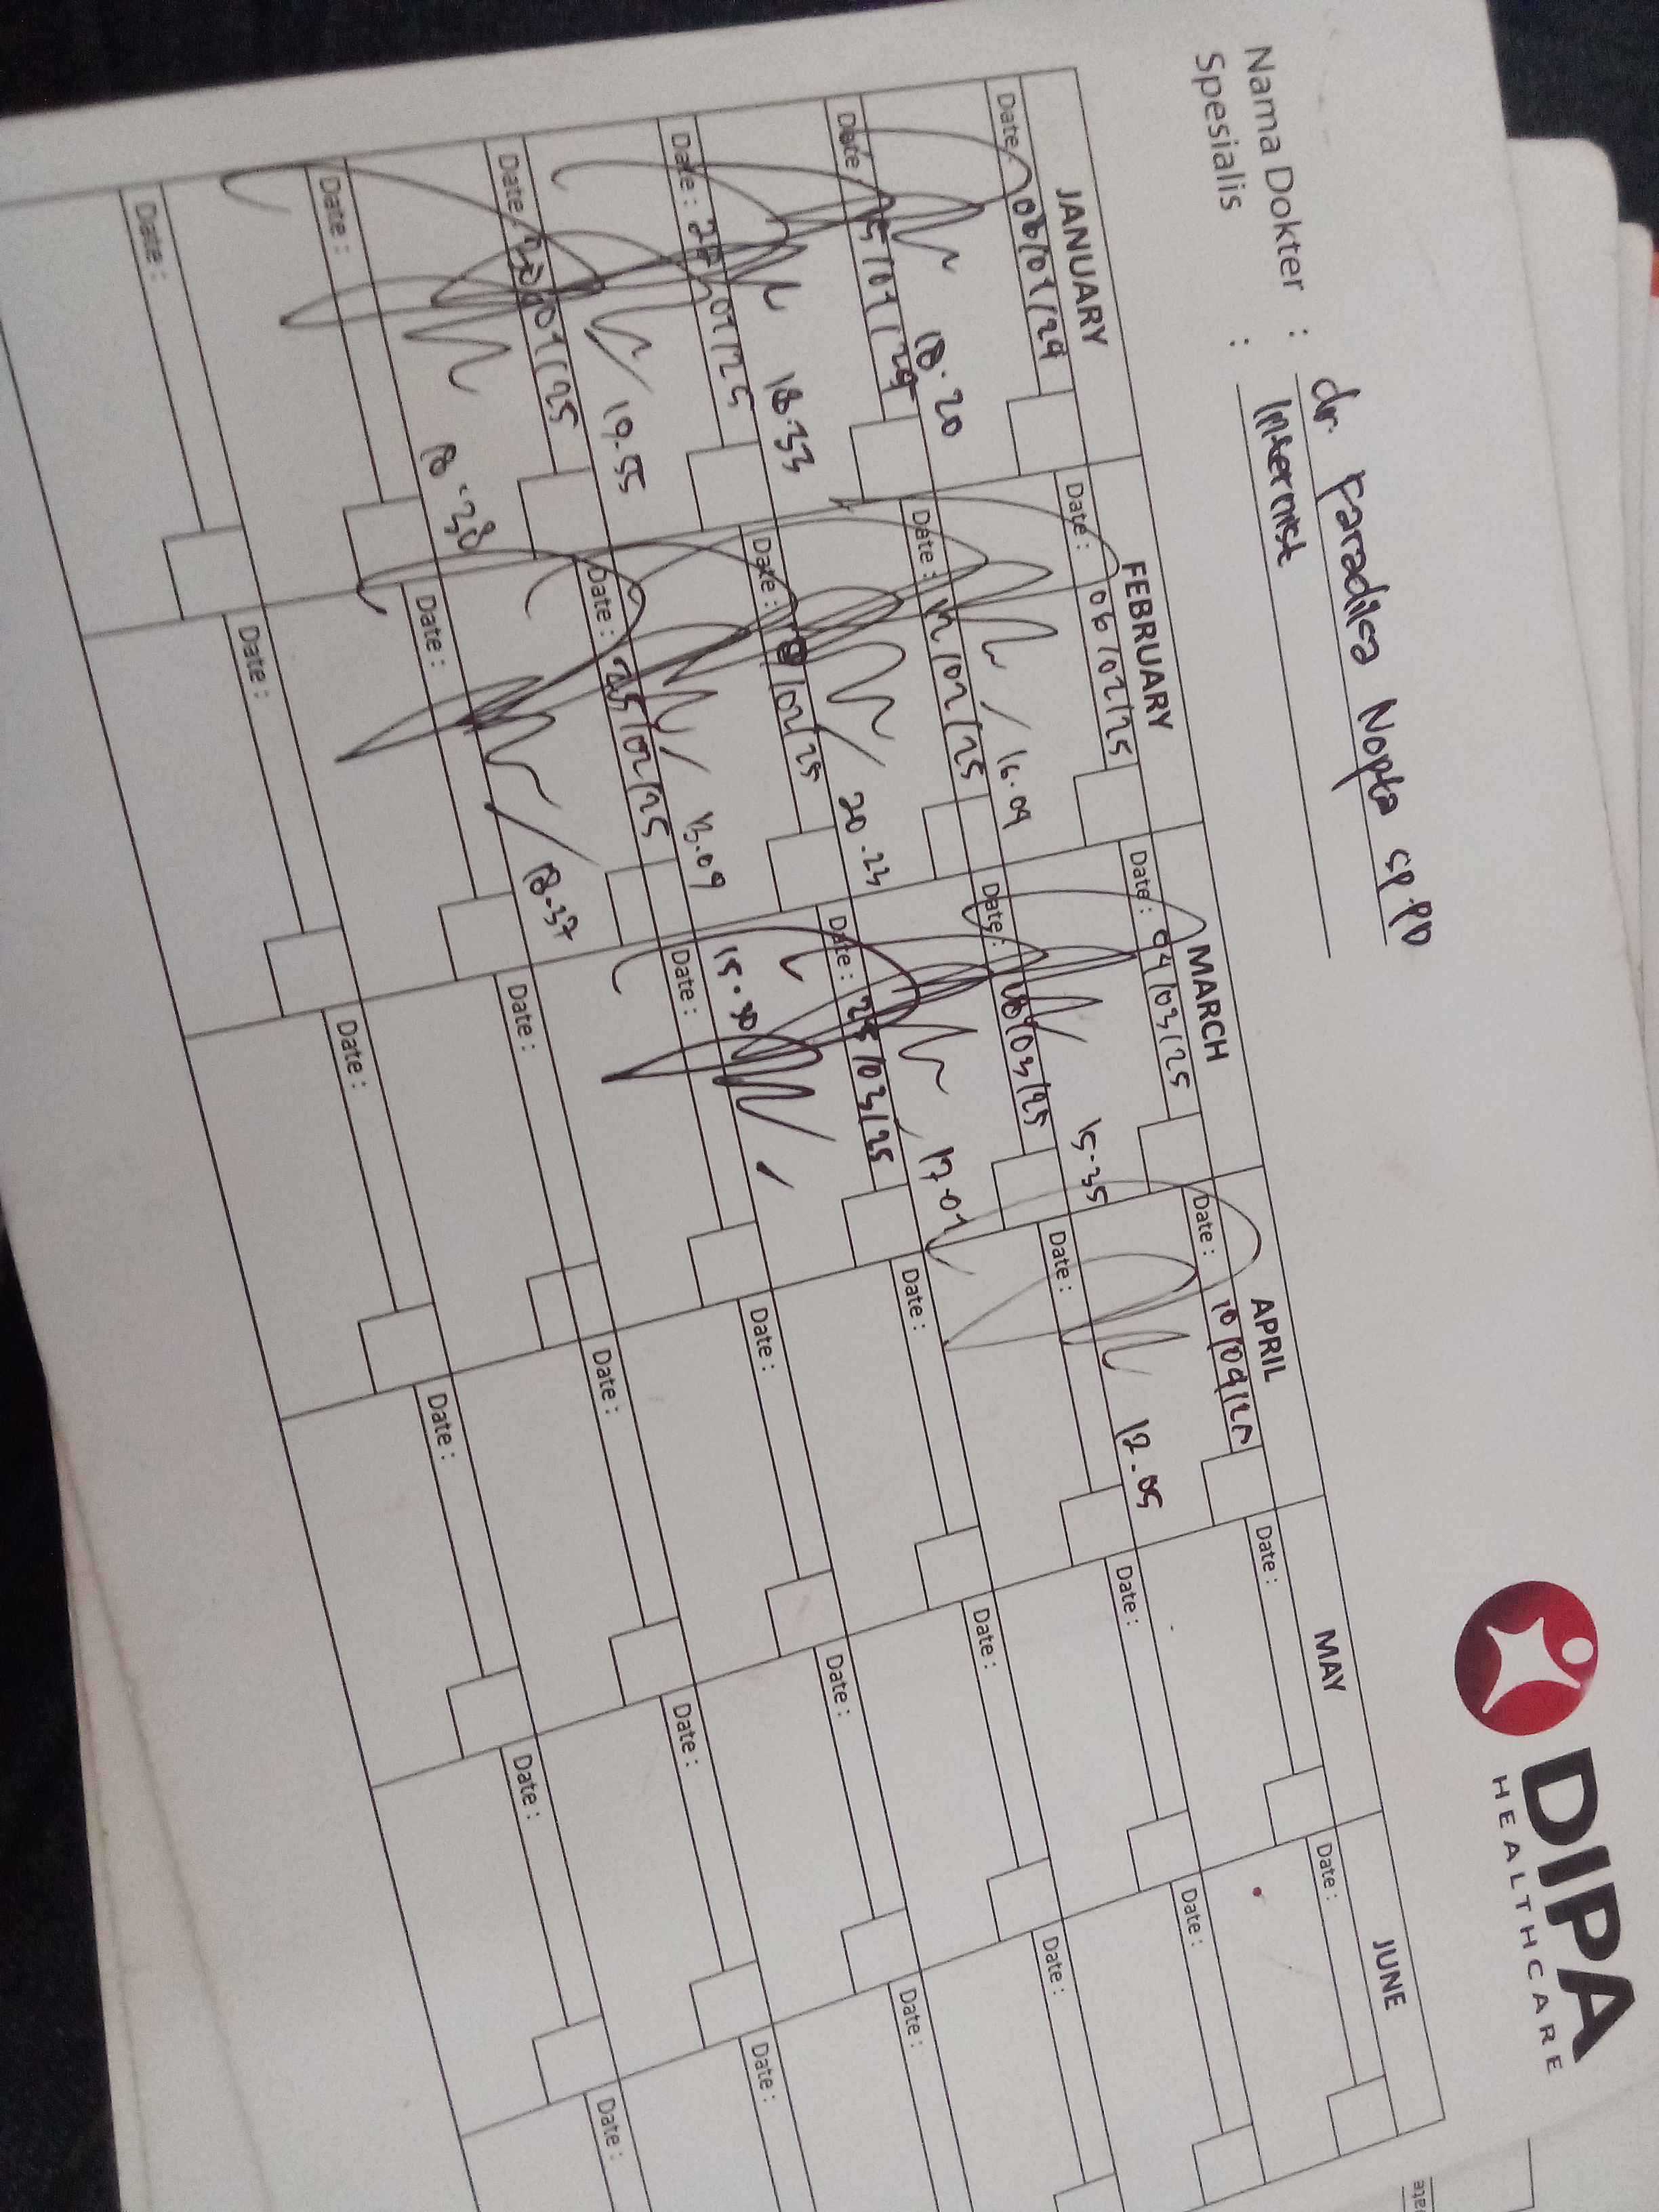 DIPA
HEALTHCARE
Nama Dokter : dr. Paradisa Nopta SP.PD
Spesialis : Internist
JANUARY FEBRUARY MARCH APRIL MAY JUNE
Date : 06/02/25 Date : 04/03/25 Date : Date : Date :
18.20 16.09 15.35 12.05
Date : Date : /02/25 Date : /03/25 Date : Date : Date :
18.33 20.23 17.01
Date : /01/25 Date : /02/25 Date : 25/03/25 Date : Date : Date :
19.55 13.09 15.30
Date : /01/25 Date : 25/02/25 Date : Date : Date : Date :
18.38 18.37
Date : Date : Date : Date : Date : Date :
Date : Date : Date : Date : Date : Date :